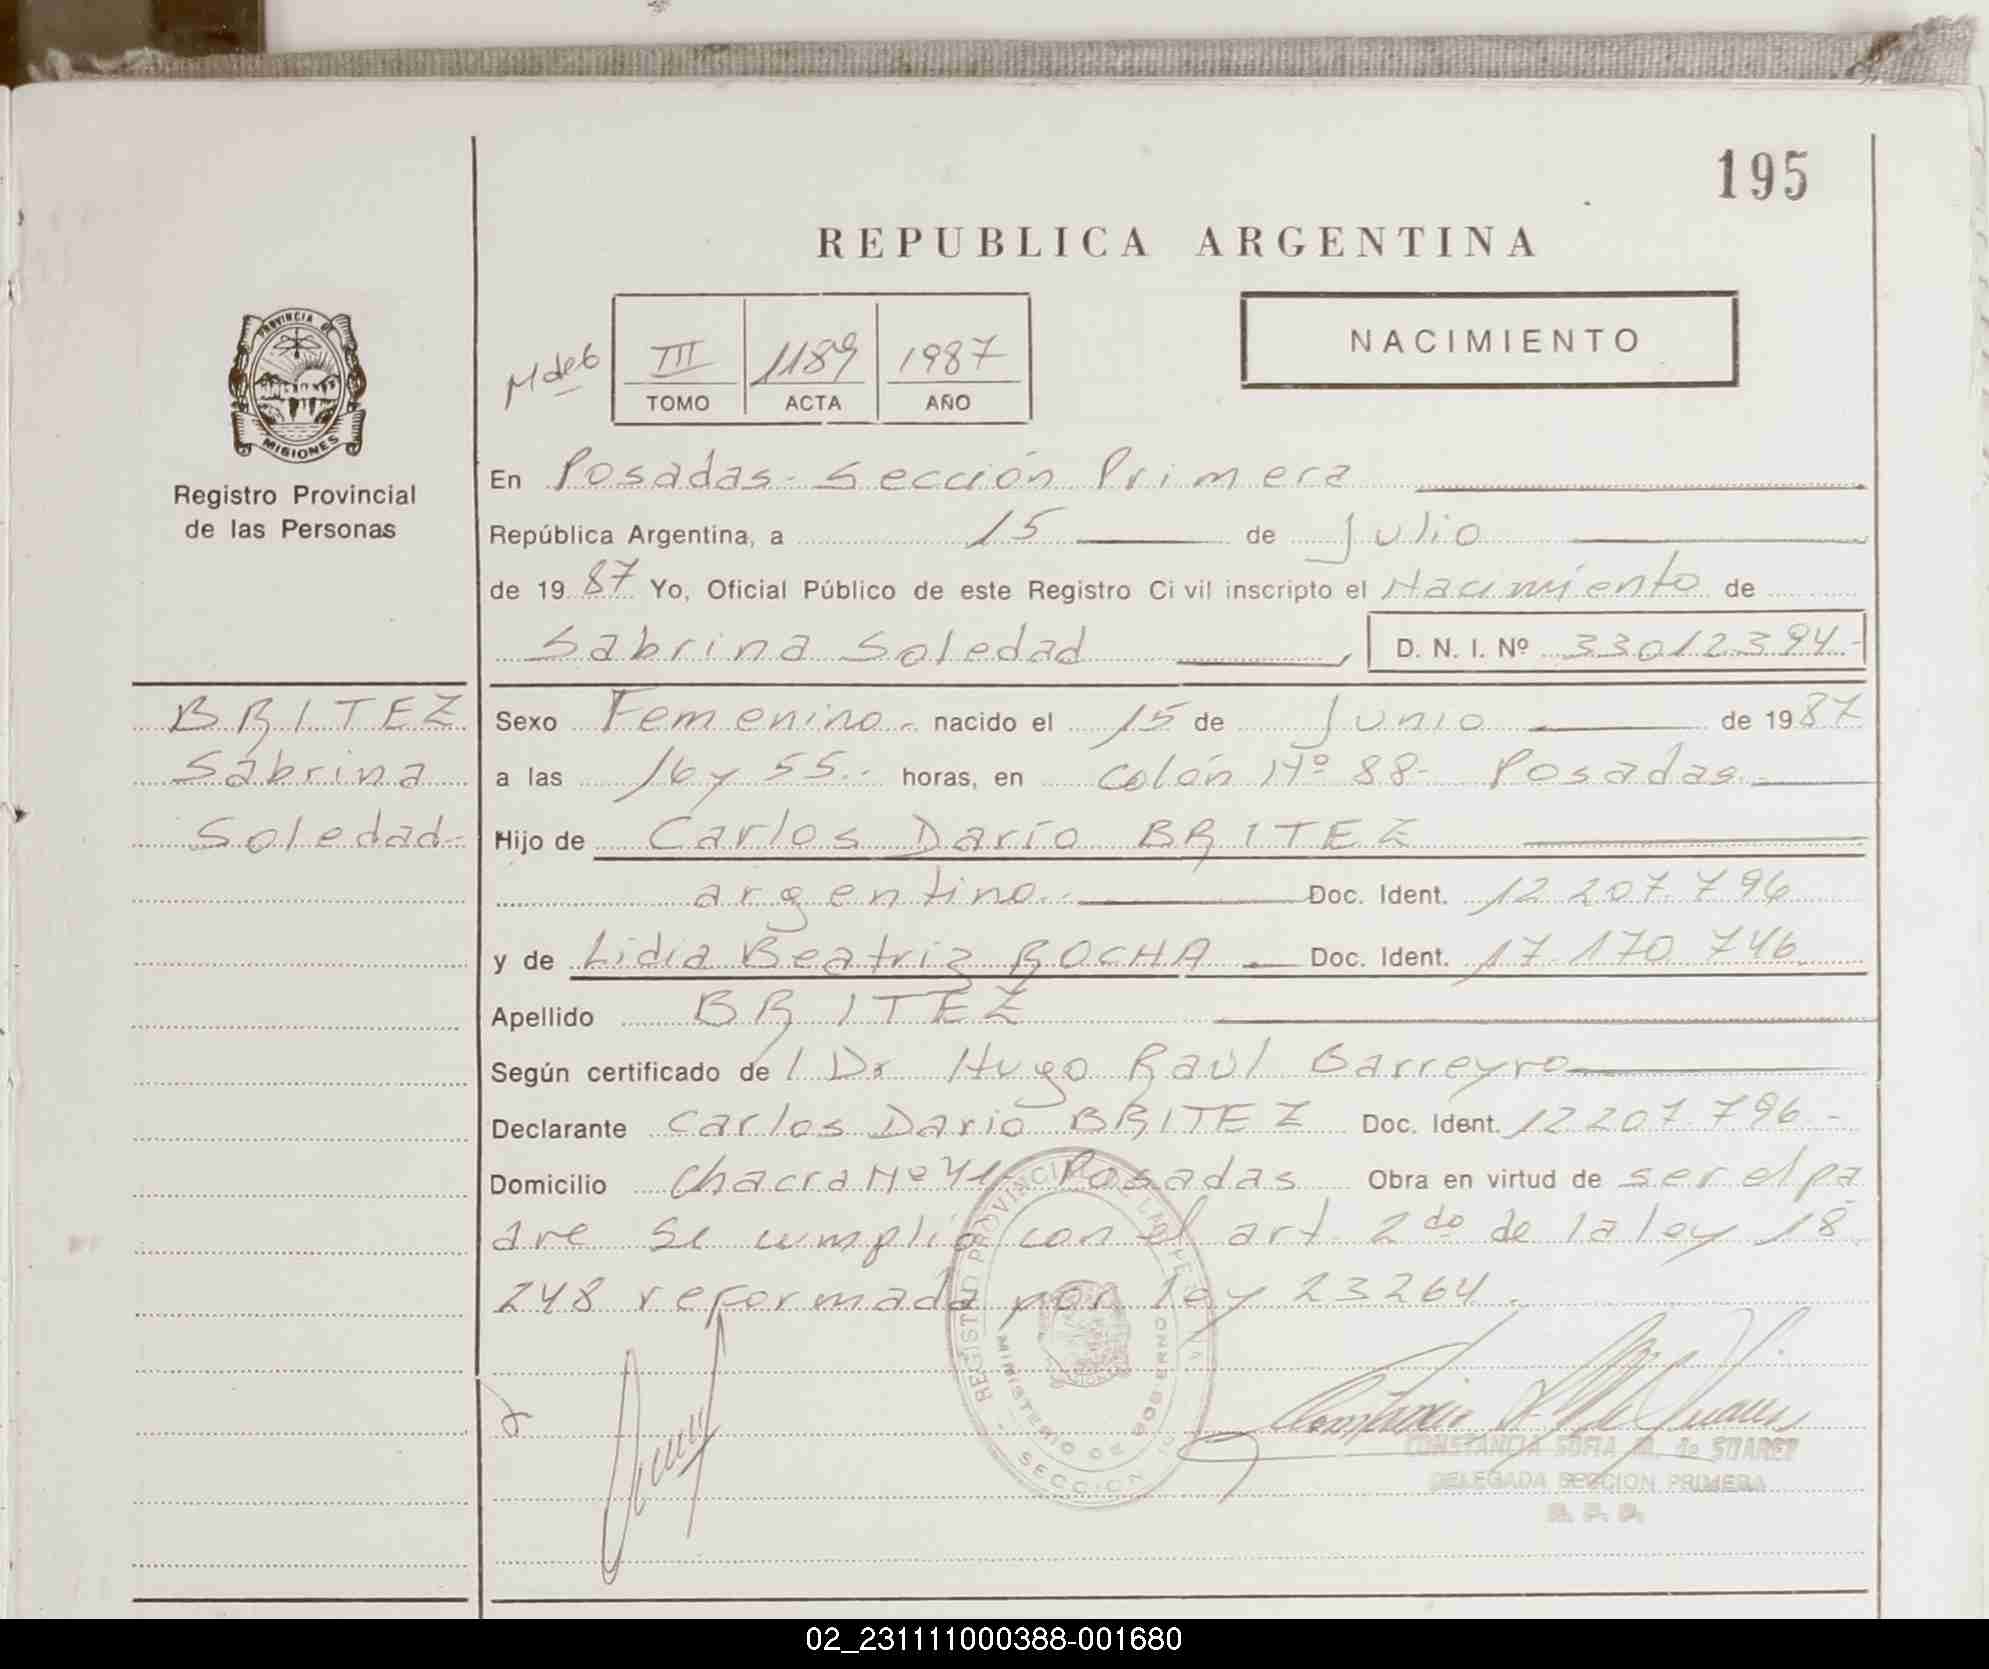 195
REPUBLICA ARGENTINA
PROVINCIA DE
MISIONES
Registro Provincial
de las Personas
M de 6
III 1189 1987
TOMO ACTA AÑO
NACIMIENTO
En Posadas - Sección Primera
República Argentina, a 15 de Julio
de 19 87 Yo, Oficial Público de este Registro Civil inscripto el Nacimiento de
Sabrina Soledad D. N. I. Nº 33012394-
BRITEZ
Sabrina
Soledad-
Sexo Femenino.- nacido el 15 de Junio de 19 87
a las 16 y 55.- horas, en Colón Nº 88- Posadas-
Hijo de Carlos Darío BRITEZ
argentino.- Doc. Ident. 12 207 796
y de Lidia Beatriz ROCHA. Doc. Ident. 17 170 746.
Apellido BRITEZ
Según certificado de l Dr Hugo Raúl Barreyro
Declarante Carlos Darío BRITEZ Doc. Ident. 12 207 796-
Domicilio Chacra Nº Posadas Obra en virtud de ser el pa
dre se cumplió con el art. 2do de la ley 18
248 reformada por ley 23264.
REGISTRO PROVINCIAL DE LAS PERSONAS
MINISTERIO DE GOBIERNO
SECCION
CONSTANCIA SOFIA M. de SUAREZ
DELEGADA SECCION PRIMERA
R. P. P.
02_231111000388-001680